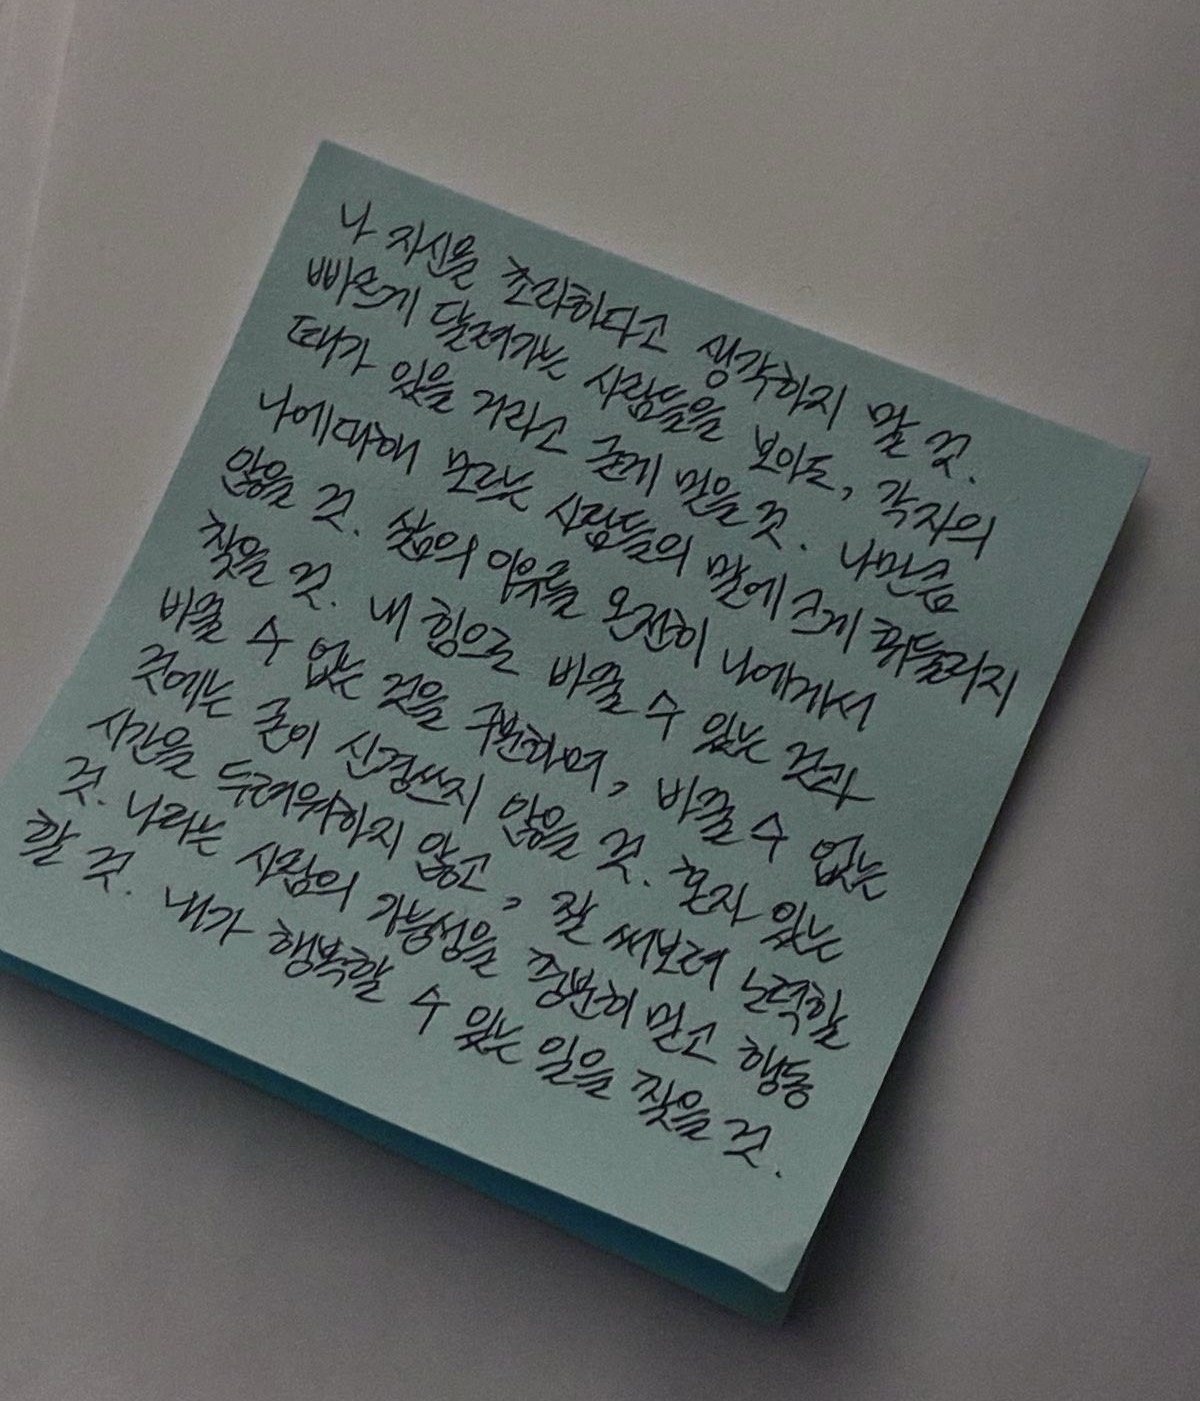 나 자신을 초라하다고 생각하지 말 것.
빠르게 달려가는 사람들을 보아도, 각자의
때가 있을 거라고 굳게 믿을 것. 나만큼
나에대해 모르는 사람들의 말에 크게 휘둘리지
않을 것. 삶의 이유를 온전히 나에게서
찾을 것. 내 힘으로 바꿀 수 있는 것과
바꿀 수 없는 것을 구분하며, 바꿀 수 없는
것에는 굳이 신경쓰지 않을 것. 혼자 있는
시간을 두려워하지 않고, 잘 써보려 노력할
것. 나라는 사람의 가능성을 충분히 믿고 행동
할 것. 내가 행복할 수 있는 일을 찾을 것.